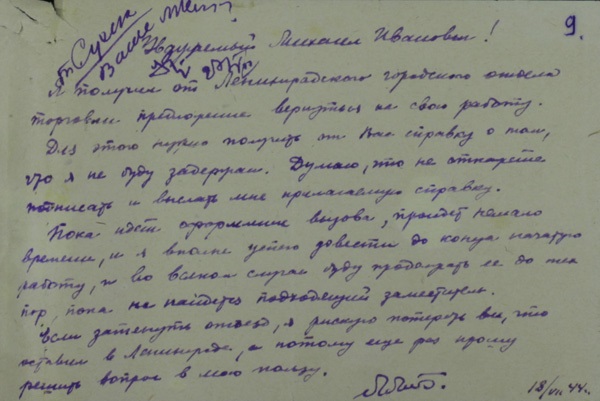 т. Сухен
Ваше мнен?
9.
Уважаемый Михаил Иванович!
Я получил от Ленинградского городского отдела
торговли предложение вернуться на свою работу.
Для этого нужно получить от Вас справку о том,
что я не буду задержан. Думаю, что не откажете
подписать и выслать мне прилагаемую справку.
Пока идет оформление вызова, пройдет немало
времени, и я вполне успею довести до конца начатую
работу, и во всяком случае буду продолжать ее до тех
пор, пока не найдется подходящий заместитель.
Если затянуть отъезд, я рискую потерять все, что
оставил в Ленинграде, а потому еще раз прошу
решить вопрос в мою пользу.
18/VII 44 г.